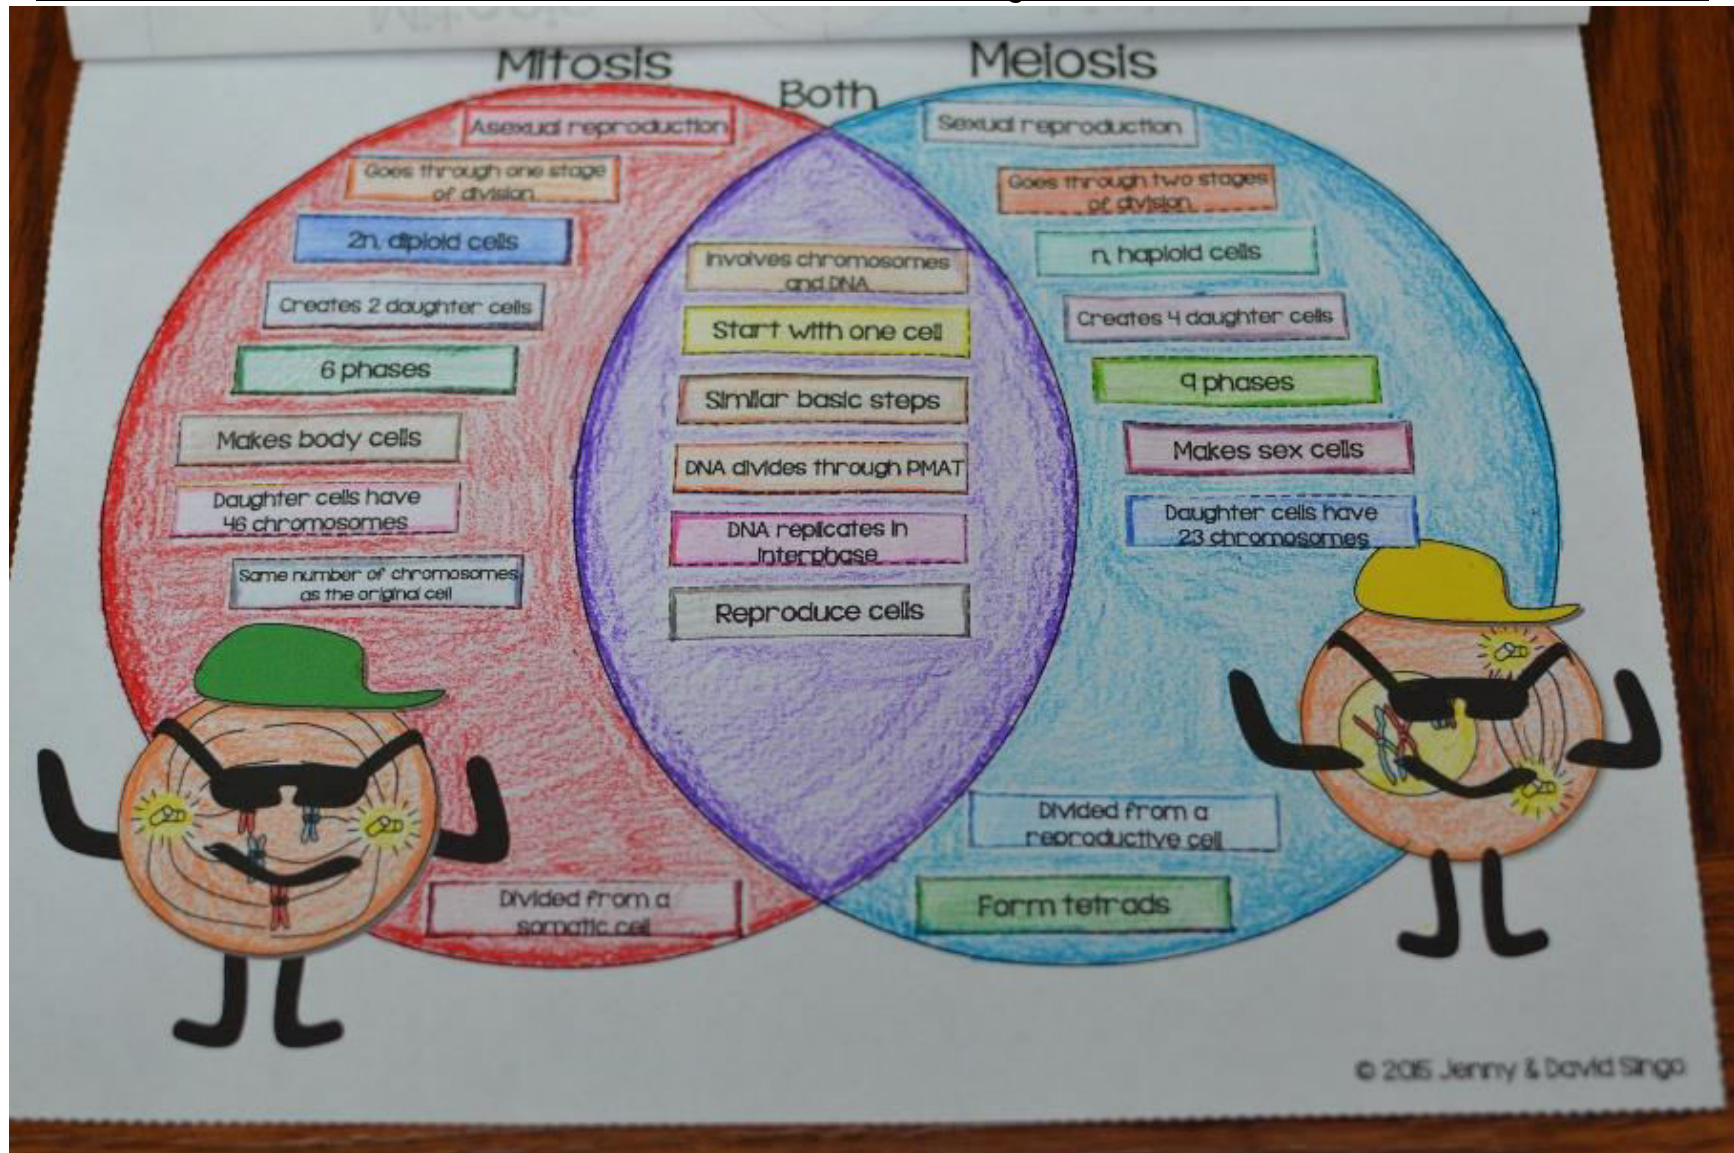 Mitosis
Both
Meiosis
Asexual reproduction
Goes through one stage
of division
2n, diploid cells
Creates 2 daughter cells
6 phases
Makes body cells
Daughter cells have
46 chromosomes
Same number of chromosomes
as the original cell
Divided from a
somatic cell
Involves chromosomes
and DNA
Start with one cell
Similar basic steps
DNA divides through PMAT
DNA replicates in
Interphase
Reproduce cells
Sexual reproduction
Goes through two stages
of division
n, haploid cells
Creates 4 daughter cells
9 phases
Makes sex cells
Daughter cells have
23 chromosomes
Divided from a
reproductive cell
Form tetrads
© 2015 Jenny & David Singo